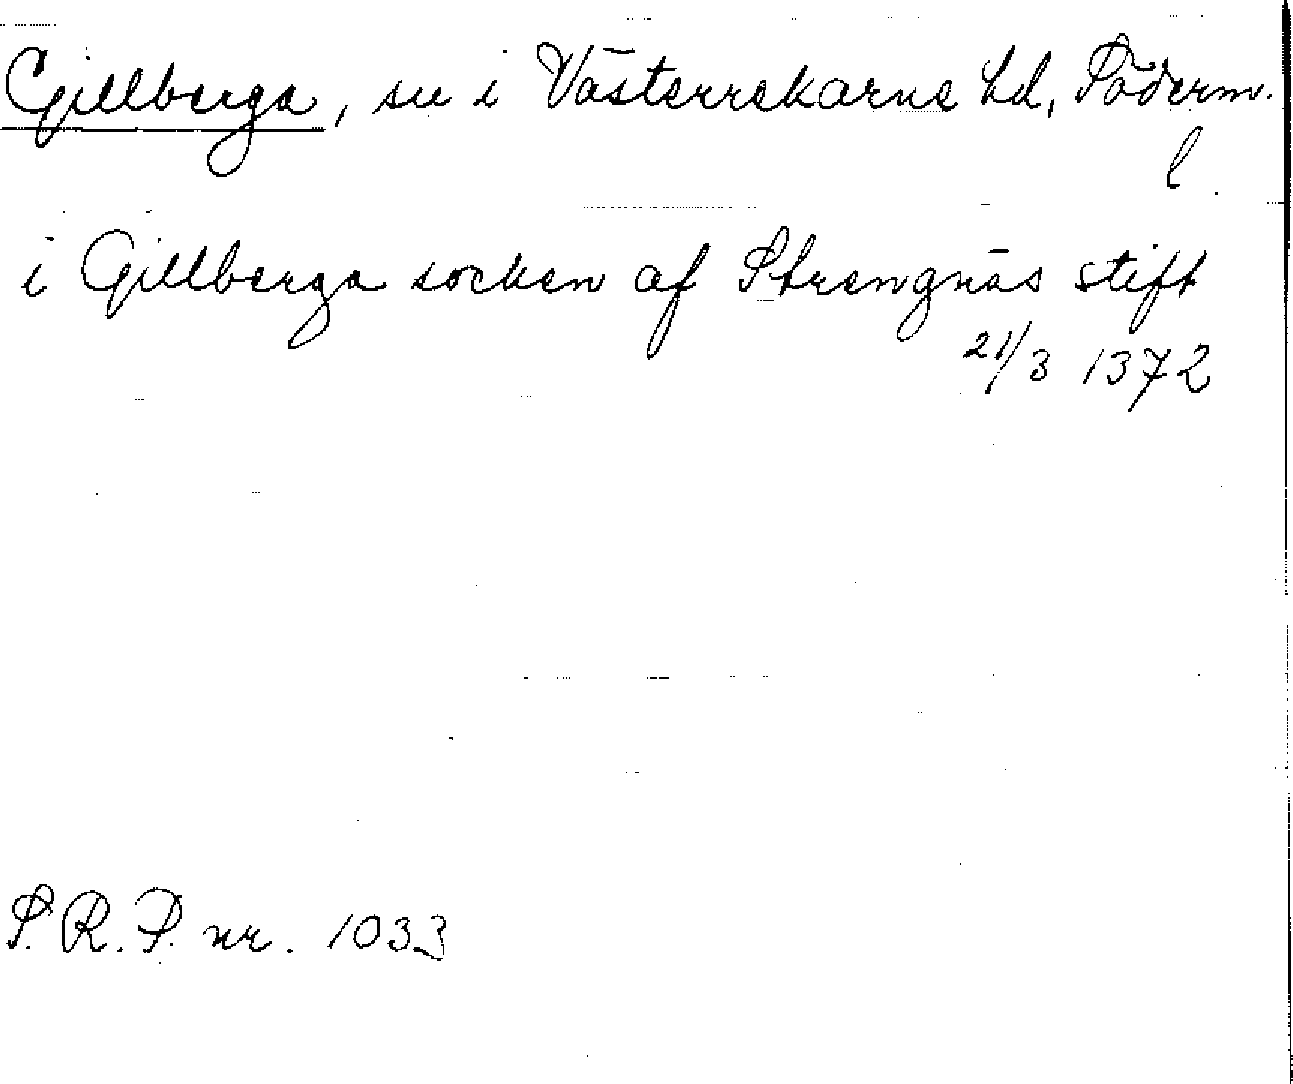 Gillberga, sn i Västerrekarne hd, Söderm.
l.
i Gillberga socken af Strengnäs stift
21/3 1372
S.R.P. nr. 1033